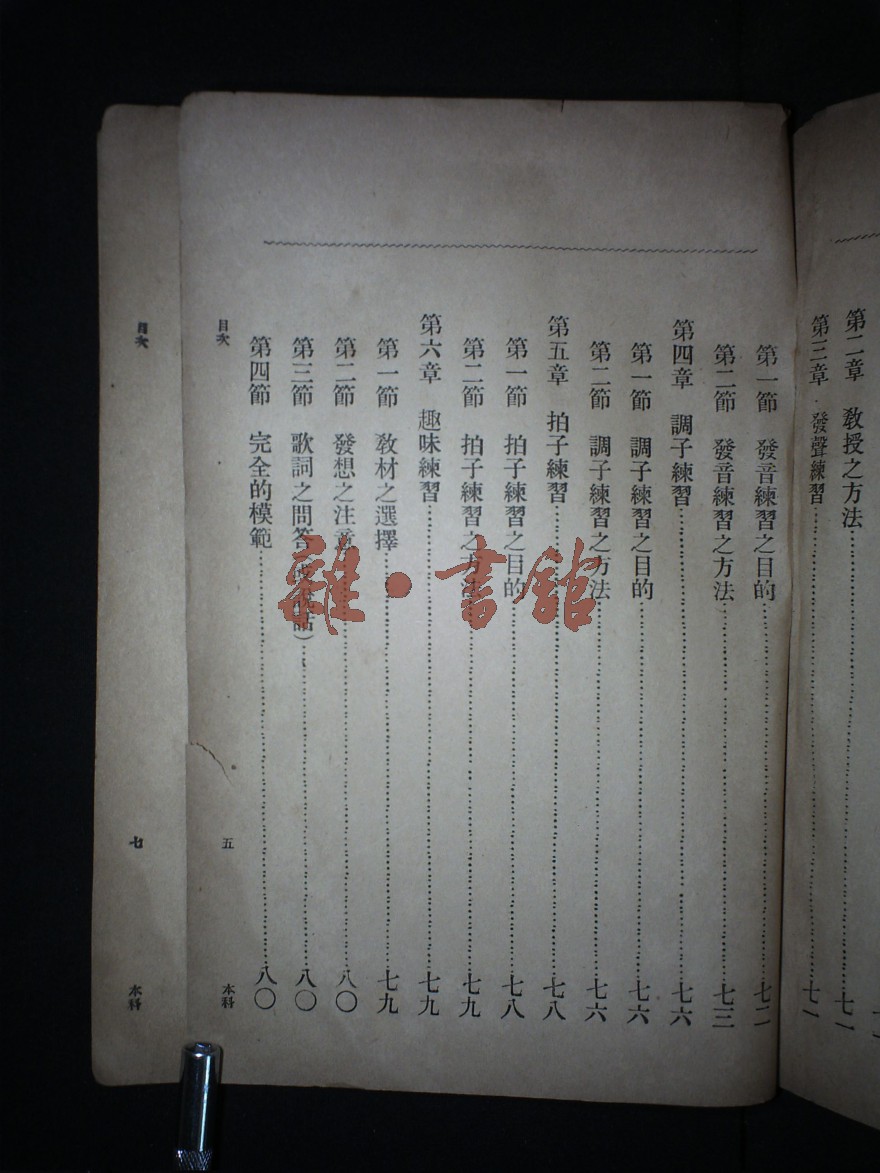 第二章 教授之方法……七一
第三章 發聲練習……七一
第一節 發音練習之目的……七二
第二節 發音練習之方法……七三
第四章 調子練習……七六
第一節 調子練習之目的……七六
第二節 調子練習之方法……七六
第五章 拍子練習……七八
第一節 拍子練習之目的……七八
第二節 拍子練習之方法……七九
第六章 趣味練習……七九
第一節 教材之選擇……七九
第二節 發想之注意……八〇
第三節 歌詞之問答 話）……八〇
第四節 完全的模範……八〇
目次 五 本科
目次 七 本科
雜·書館